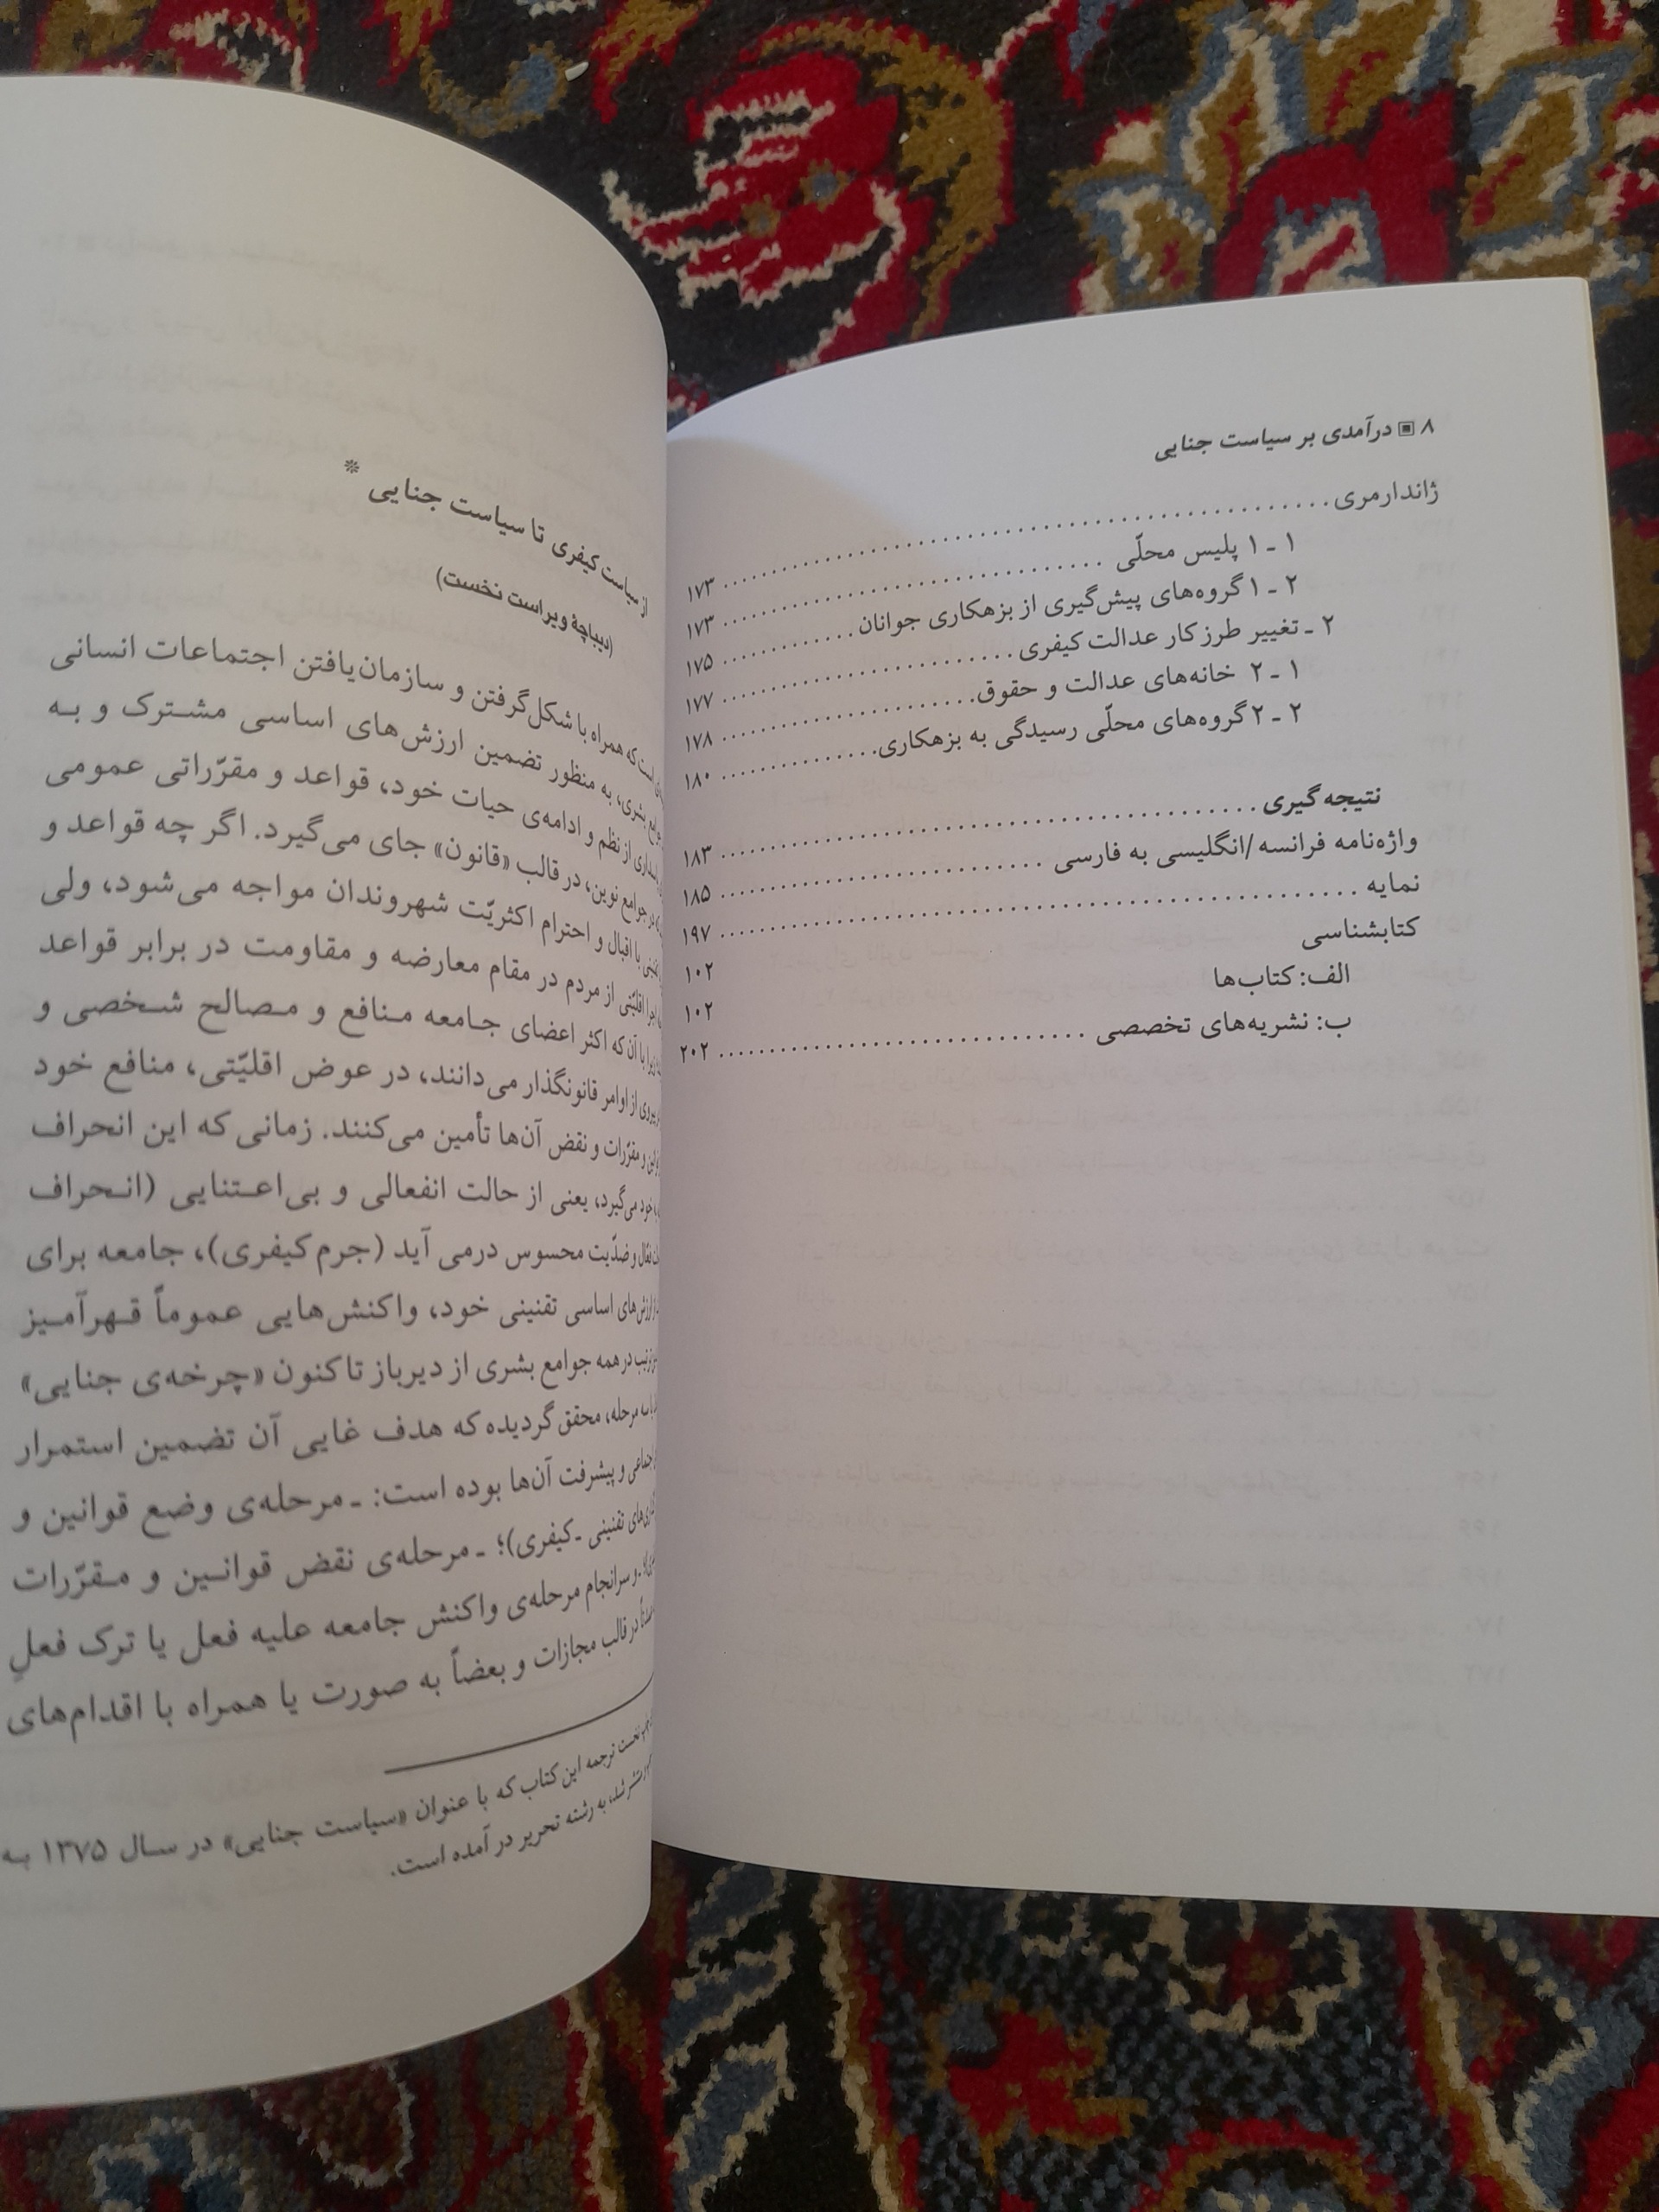 ۸ ▣ درآمدی بر سیاست جنایی
ژاندارمری ........ ۱۷۳
۱ ـ ۱ پلیس محلّی ........ ۱۷۳
۲ ـ ۱ گروه‌های پیش‌گیری از بزهکاری جوانان ........ ۱۷۵
۲ ـ تغییر طرز کار عدالت کیفری ........ ۱۷۷
۱ ـ ۲ خانه‌های عدالت و حقوق ........ ۱۷۸
۲ ـ ۲ گروه‌های محلّی رسیدگی به بزهکاری ........ ۱۸۰
نتیجه گیری ........ ۱۸۳
واژه‌نامه فرانسه/انگلیسی به فارسی ........ ۱۸۵
نمایه ........ ۱۹۷
کتابشناسی ۱۰۲
الف: کتاب‌ها ۱۰۲
ب: نشریه‌های تخصصی ........ ۲۰۲
از سیاست کیفری تا سیاست جنایی *
(دیباچهٔ ویراست نخست)
است که همراه با شکل‌گرفتن و سازمان‌یافتن اجتماعات انسانی
جوامع بشری، به منظور تضمین ارزش‌های اساسی مشترک و به
از نظم و ادامه‌ی حیات خود، قواعد و مقرّراتی عمومی
در جوامع نوین، در قالب «قانون» جای می‌گیرد. اگر چه قواعد و
با اقبال و احترام اکثریّت شهروندان مواجه می‌شود، ولی
اقلیّتی از مردم در مقام معارضه و مقاومت در برابر قواعد
زیرا با آن که اکثر اعضای جامعه منافع و مصالح شخصی و
پیروی از اوامر قانونگذار می‌دانند، در عوض اقلیّتی، منافع خود
و مقرّرات و نقض آن‌ها تأمین می‌کنند. زمانی که این انحراف
خود می‌گیرد، یعنی از حالت انفعالی و بی‌اعتنایی (انحراف
فعّال و ضدّیت محسوس درمی آید (جرم کیفری)، جامعه برای
ارزش‌های اساسی تقنینی خود، واکنش‌هایی عموماً قهرآمیز
در همه جوامع بشری از دیرباز تاکنون «چرخه‌ی جنایی»
با سه مرحله، محقق گردیده که هدف غایی آن تضمین استمرار
و پیشرفت آن‌ها بوده است: ـ مرحله‌ی وضع قوانین و
تقنینی ـ کیفری)؛ ـ مرحله‌ی نقض قوانین و مقرّرات
ـ و سرانجام مرحله‌ی واکنش جامعه علیه فعل یا ترک فعلِ
در قالب مجازات و بعضاً به صورت یا همراه با اقدام‌های
نخست ترجمه این کتاب که با عنوان «سیاست جنایی» در سال ۱۳۷۵ به
منتشر شد، به رشته تحریر در آمده است.